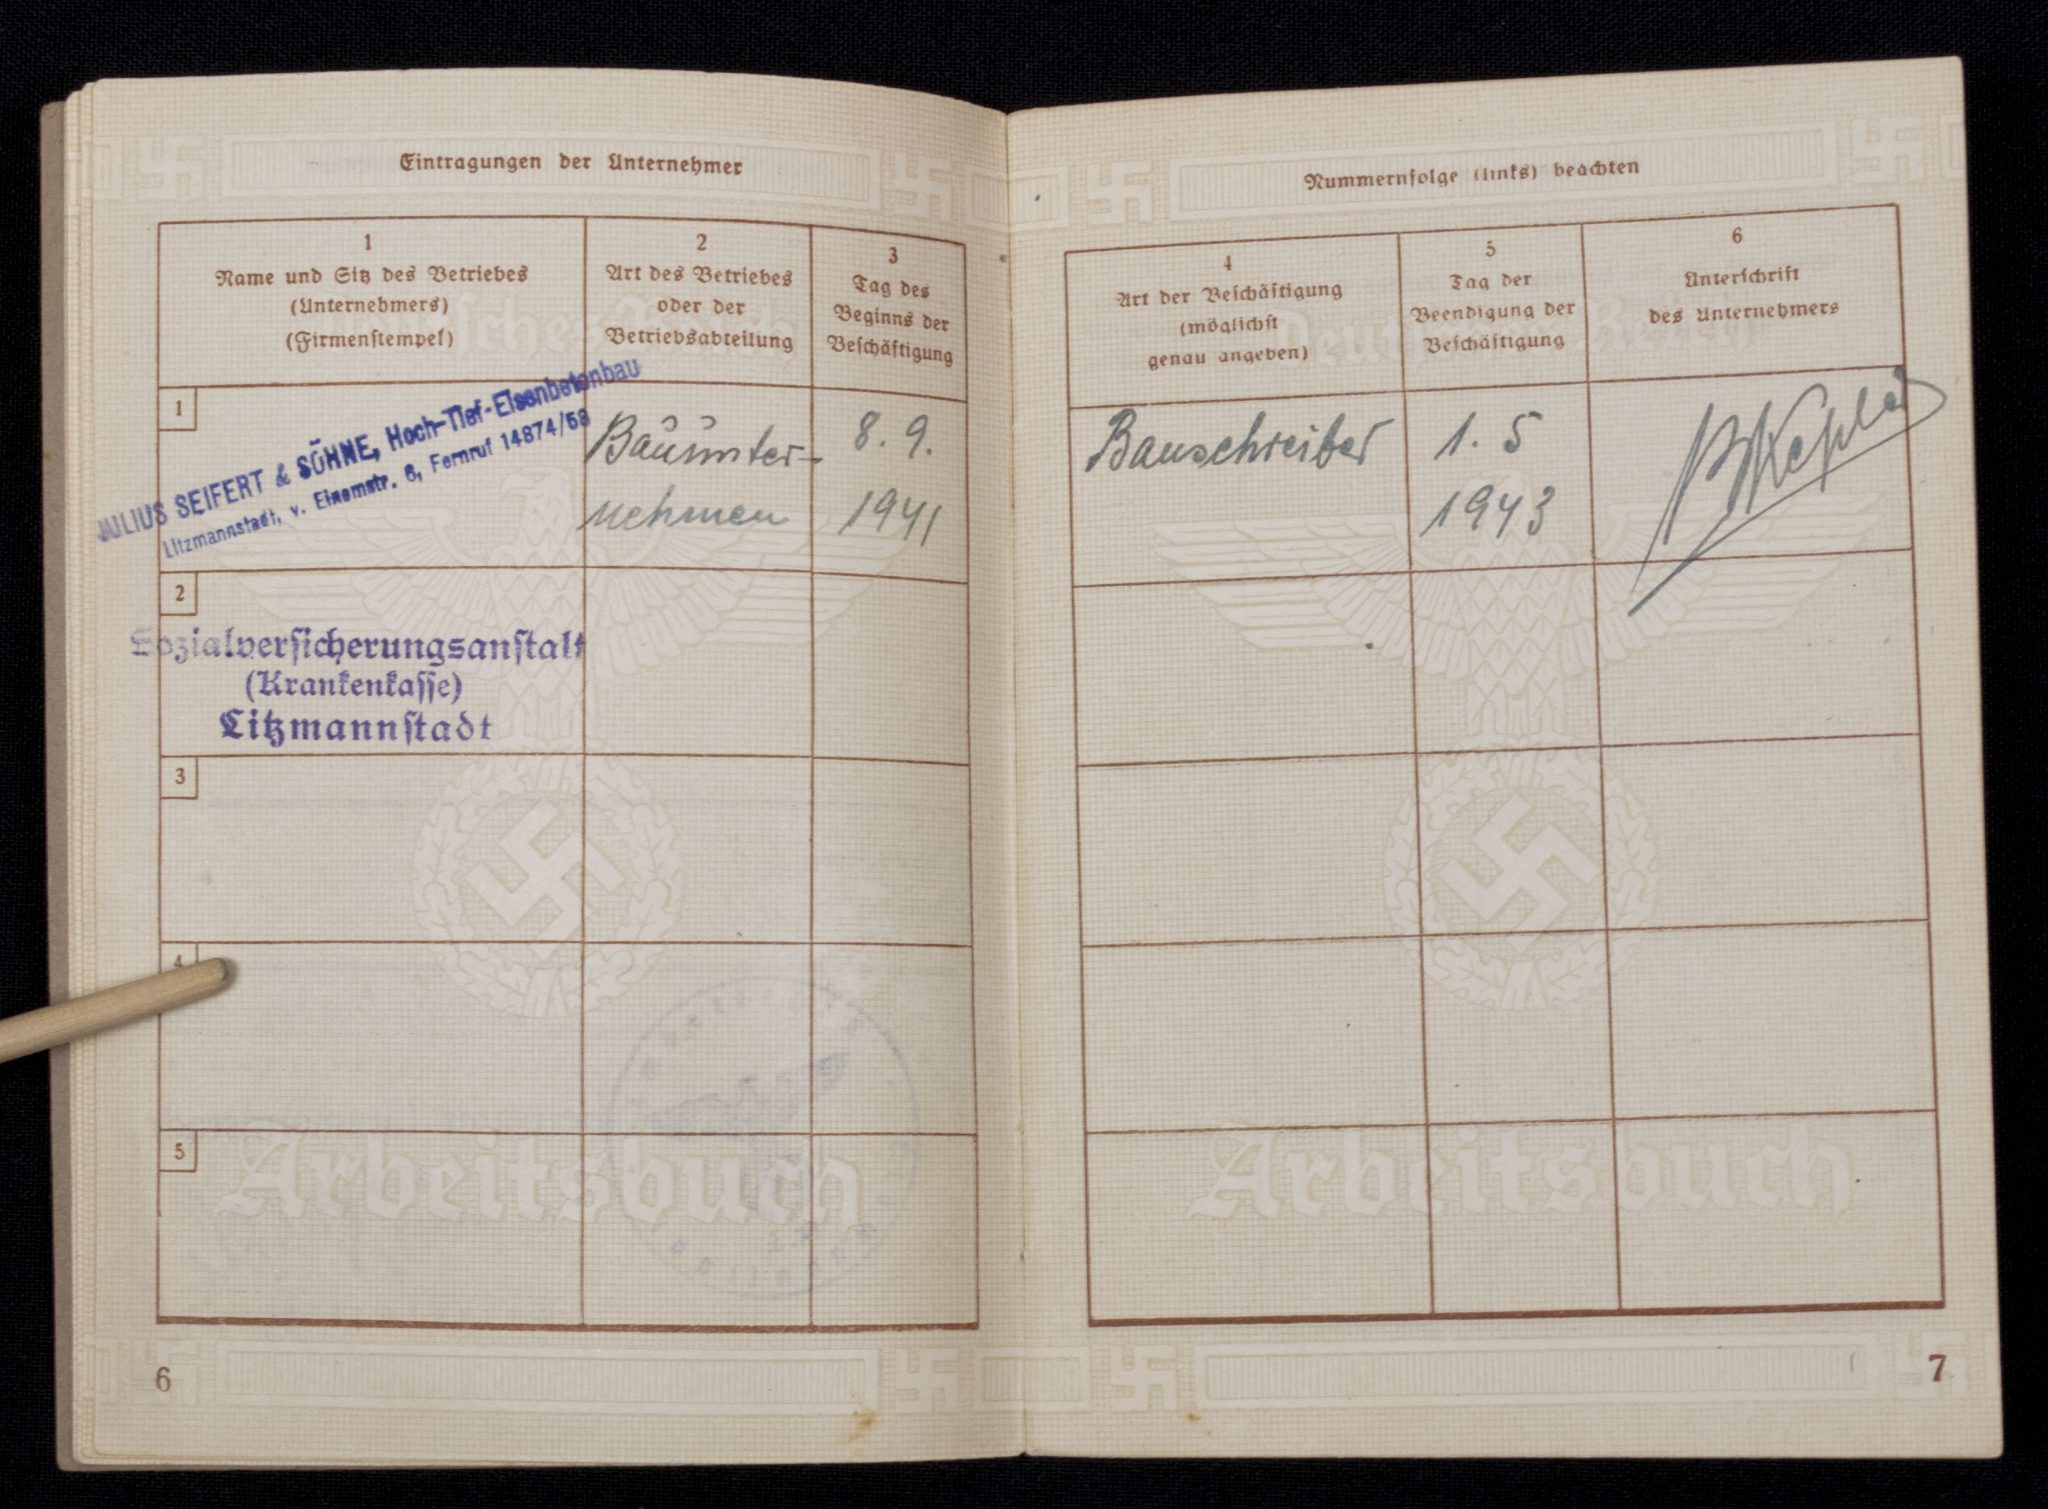 Eintragungen der Unternehmer
1
Name und Sitz des Betriebes
(Unternehmers)
(Firmenstempel)
2
Art des Betriebes
oder der
Betriebsabteilung
3
Tag des
Beginns der
Beschäftigung
1
JULIUS SEIFERT & SÖHNE, Hoch-Tief-Eisenbetonbau
Litzmannstadt, v. Einemstr. 6, Fernruf 14874/58
Bauunter-
nehmen
8. 9.
1941
2
Sozialversicherungsanstalt
(Krankenkasse)
Litzmannstadt
3
4
5
Arbeitsbuch
6
Nummernfolge (links) beachten
4
Art der Beschäftigung
(möglichst
genau angeben)
5
Tag der
Beendigung der
Beschäftigung
6
Unterschrift
des Unternehmers
Deutsches Reich
Bauschreiber
1. 5
1943
Arbeitsbuch
7